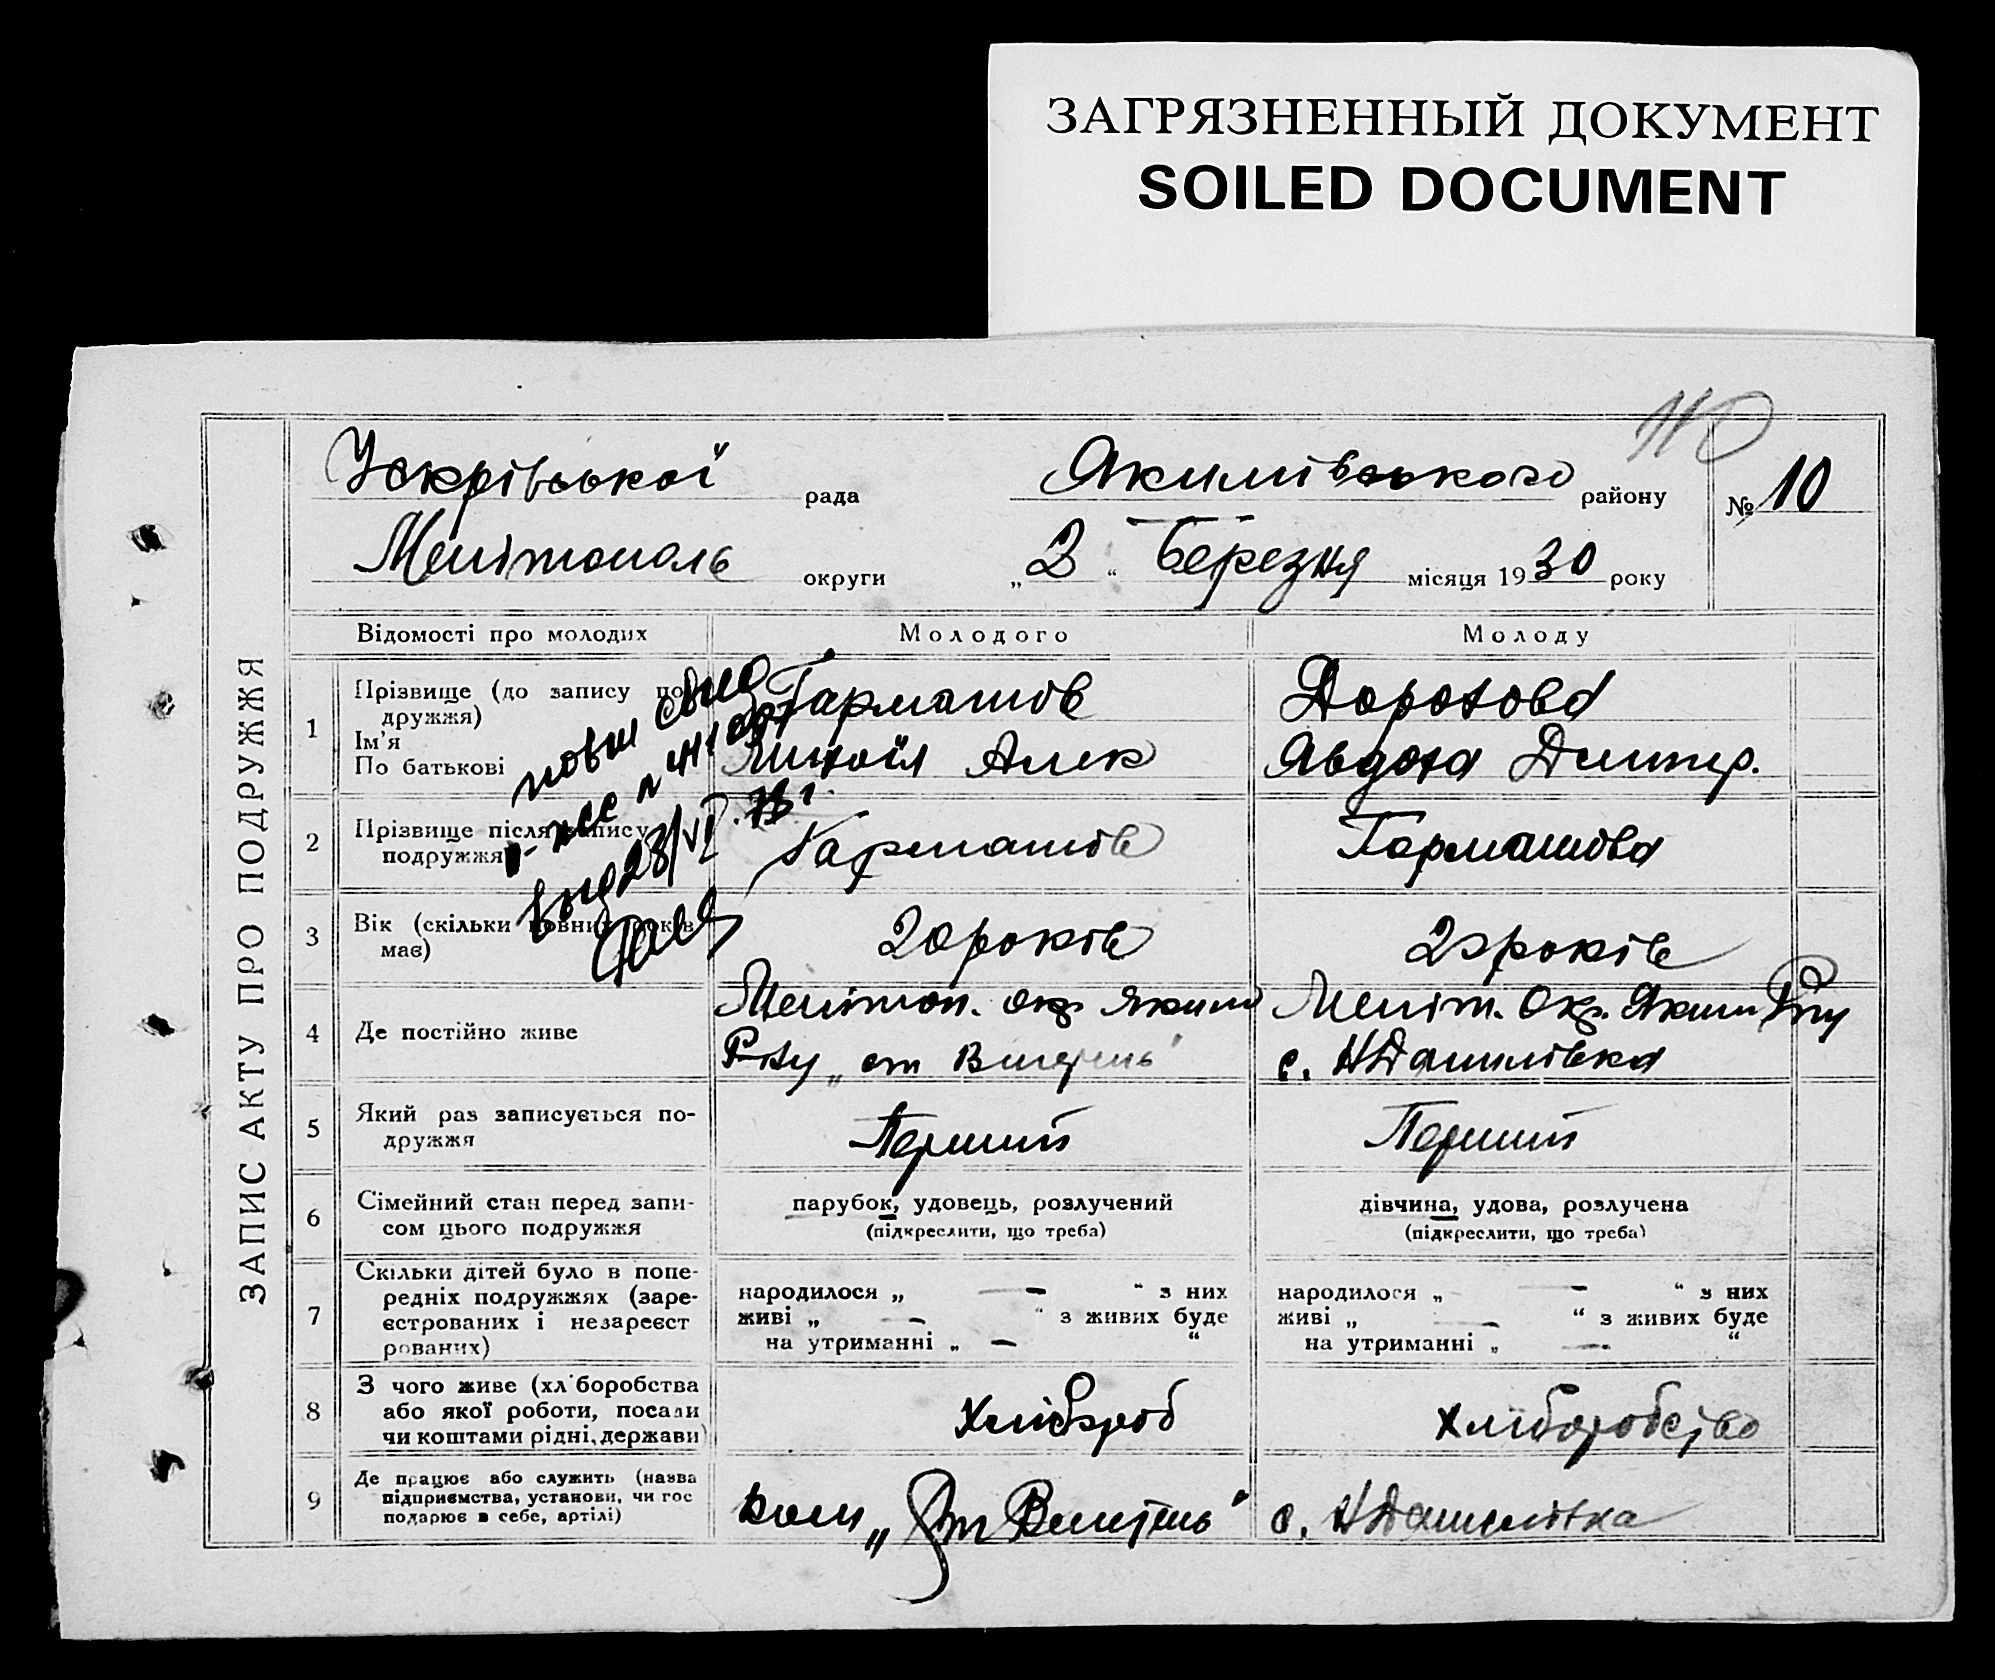 ЗАГРЯЗНЕННЫЙ ДОКУМЕНТ
SOILED DOCUMENT
110
ЗАПИС АКТУ ПРО ПОДРУЖЖЯ
рада Якимівського району № 10
Мелітополь округи „2“ Березня місяця 1930 року
Відомості про молодих Молодого Молоду
1 Прізвище (до запису подружжя) Гармашов
Ім'я
По батькові Михоїл Алек Явдоха Дмитр.
2 Прізвище після запису подружжя Гармашов Гармашова
3 Вік (скільки повних років має) 20 років років
4 Де постійно живе Мелітоп. окр Яким Р-ну Меліт. Окр. Яким Р-ну
с. НДанилівка
5 Який раз записується подружжя Перший Перший
6 Сімейний стан перед записом цього подружжя парубок, удовець, розлучений дівчина, удова, розлучена
(підкреслити, що треба) (підкреслити, що треба)
7 Скільки дітей було в попередніх подружжях (зареєстрованих і незареєстрованих)
народилося „ — “ з них народилося „ — “ з них
живі „ — “ з живих буде живі „ — “ з живих буде
на утриманні „ — “ на утриманні „ — “
8 З чого живе (хліборобства або якої роботи, посади чи коштами рідні, держави) Хлібороб Хліборобство
9 Де працює або служить (назва підприємства, установи, чи госродарює в себе, артілі) с. НДанилівка
28/VI. 73 г.